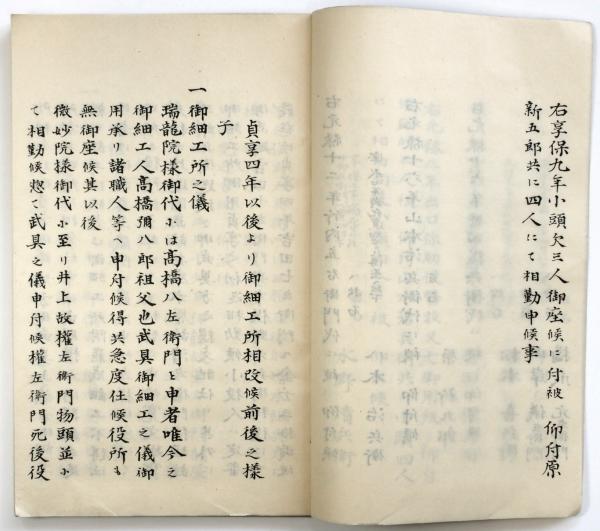 右享保九年小頭欠三人御座候に付被 仰付原
新五郎共に四人にて相勤申候事
貞享四年以後より御細工所相改候前後之様
子
一御細工所之儀
瑞龍院様御代ニは高橋八左衛門と申者唯今之
御細工人高橋彌八郎祖父也武具御細工之儀御
用承り諸職人等へ申付候得共急度仕候役所も
無御座候其以後
微妙院様御代ニ至り井上故權左衛門物頭並ニ
て相勤候惣て武具之儀申付候權左衛門死後役